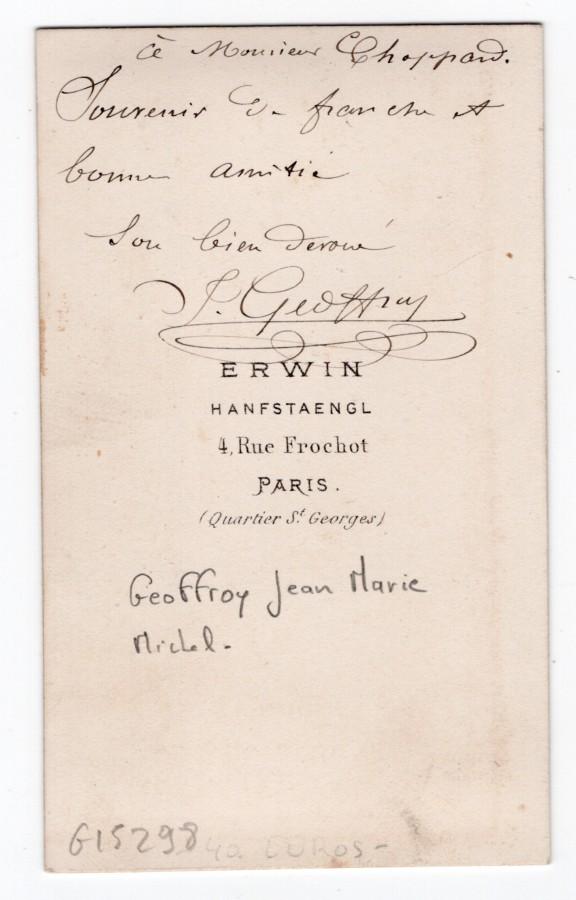 à Monsieur Choppard.
Souvenir de franche et
bonne amitié
Son bien devoué
J. Geoffroy
ERWIN
HANFSTAENGL
4, Rue Frochot
PARIS.
(Quartier St. Georges)
Geoffroy Jean Marie
Michel.
G15298 40 EUROS-